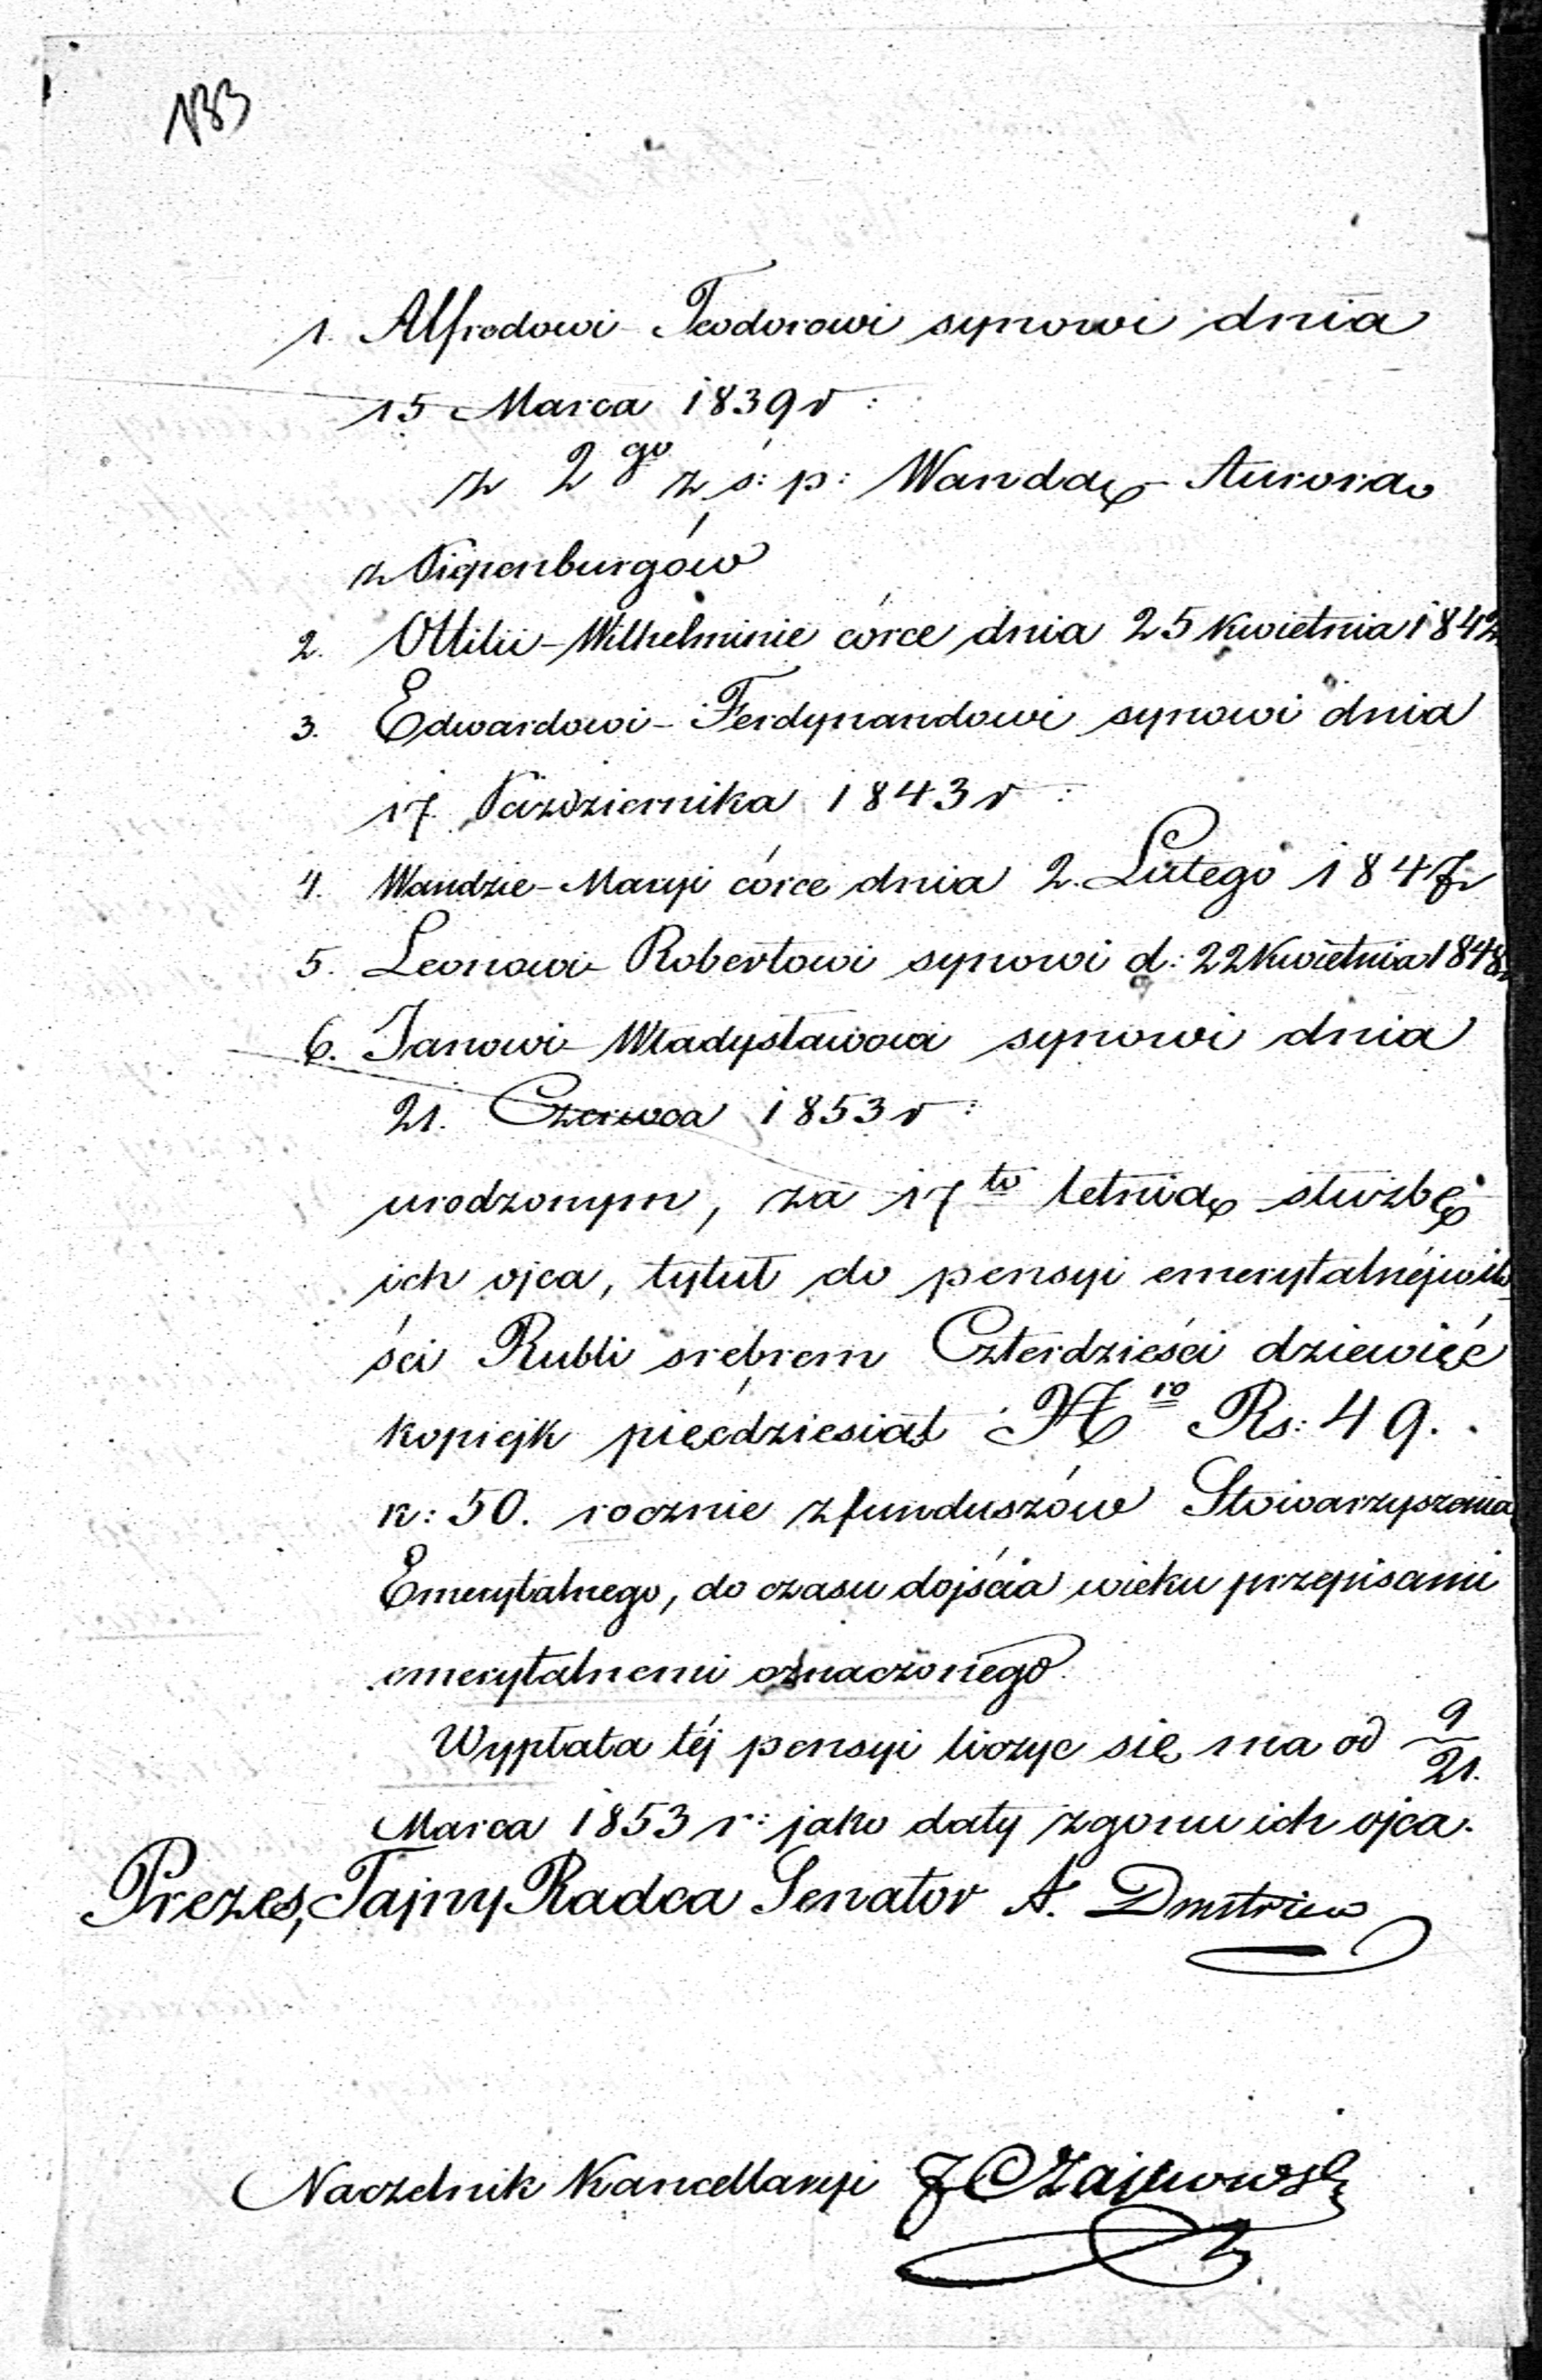 133
1. Alfredowi-Teodorowi synowi dnia
15 Marca 1839 r:
z 2go z ś: p: Wandą Aurorą
z Piepenburgów
2. Ottilii-Wilhelminie córce dnia 25 Kwietnia 1842
3. Edwardowi-Ferdynandowi synowi dnia
17. Października 1843 r:
4. Wandzie-Maryi córce dnia 2. Lutego 1847 r
5. Leonowi-Robertowi synowi d: 22 Kwietnia 1848
6. Janowi-Władysławowi synowi dnia
21. Czerwca 1853 r:
urodzonym, za 17to letnią służbę
ich ojca, tytuł do pensyi emerytalnéj w ilo
ści Rubli srebrem Czterdzieści dziewięć
kopiejk pięćdziesiąt Nro Rs: 49.
k: 50. rocznie z funduszów Stowarzyszenia
Emerytalnego, do czasu dojścia wieku przepisami
emerytalnemi oznaczonego.
Wypłata téj pensyi liczyc się ma od 9/21.
Marca 1853 r: jako daty zgonu ich ojca.
Prezes, Tajny Radca Senator A. Dmitriew
Naczelnik Kancellaryi J Czajkowski